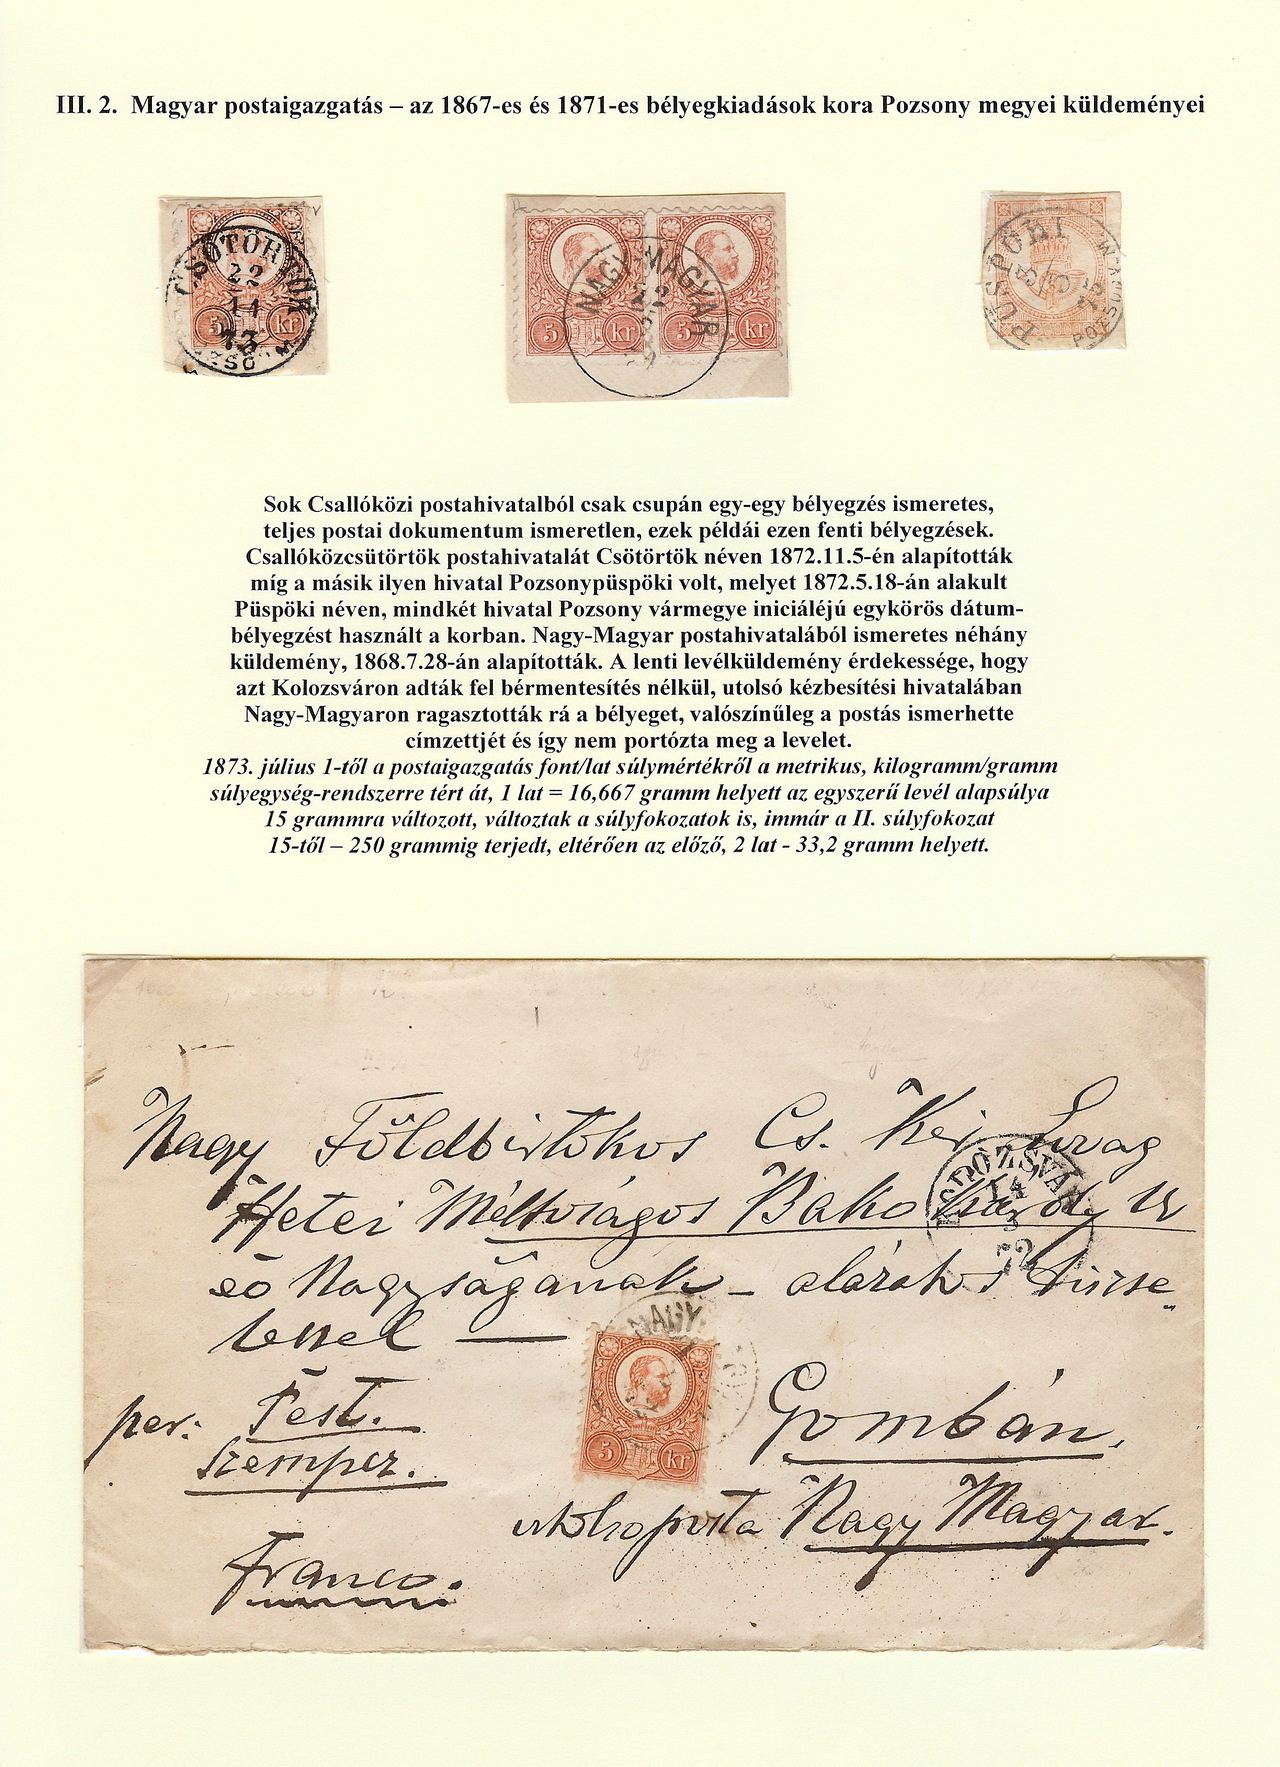 III. 2. Magyar postaigazgatás – az 1867-es és 1871-es bélyegkiadások kora Pozsony megyei küldeményei
CSÖTÖRTÖK
22
11
73
5 kr
NAGY-MAGYAR
22
5 kr 5 kr
PÜSPÖKI
Sok Csallóközi postahivatalból csak csupán egy-egy bélyegzés ismeretes,
teljes postai dokumentum ismeretlen, ezek példái ezen fenti bélyegzések.
Csallóközcsütörtök postahivatalát Csötörtök néven 1872.11.5-én alapították
míg a másik ilyen hivatal Pozsonypüspöki volt, melyet 1872.5.18-án alakult
Püspöki néven, mindkét hivatal Pozsony vármegye iniciáléjú egykörös dátum-
bélyegzést használt a korban. Nagy-Magyar postahivatalából ismeretes néhány
küldemény, 1868.7.28-án alapították. A lenti levélküldemény érdekessége, hogy
azt Kolozsváron adták fel bérmentesítés nélkül, utolsó kézbesítési hivatalában
Nagy-Magyaron ragasztották rá a bélyeget, valószínűleg a postás ismerhette
címzettjét és így nem portózta meg a levelet.
1873. július 1-től a postaigazgatás font/lat súlymértékről a metrikus, kilogramm/gramm
súlyegység-rendszerre tért át, 1 lat = 16,667 gramm helyett az egyszerű levél alapsúlya
15 grammra változott, változtak a súlyfokozatok is, immár a II. súlyfokozat
15-től – 250 grammig terjedt, eltérően az előző, 2 lat - 33,2 gramm helyett.
Nagy Földbirtokos Cs. Kir. Lovag
Hetei Méltóságos Bako Károly Ur
eö Nagyságának – alázatos tiszte-
lettel
NAGY-
5 kr
per: Pest.
Szemptz.
Gombán.
utolsó posta Nagy Magyar.
Franco.